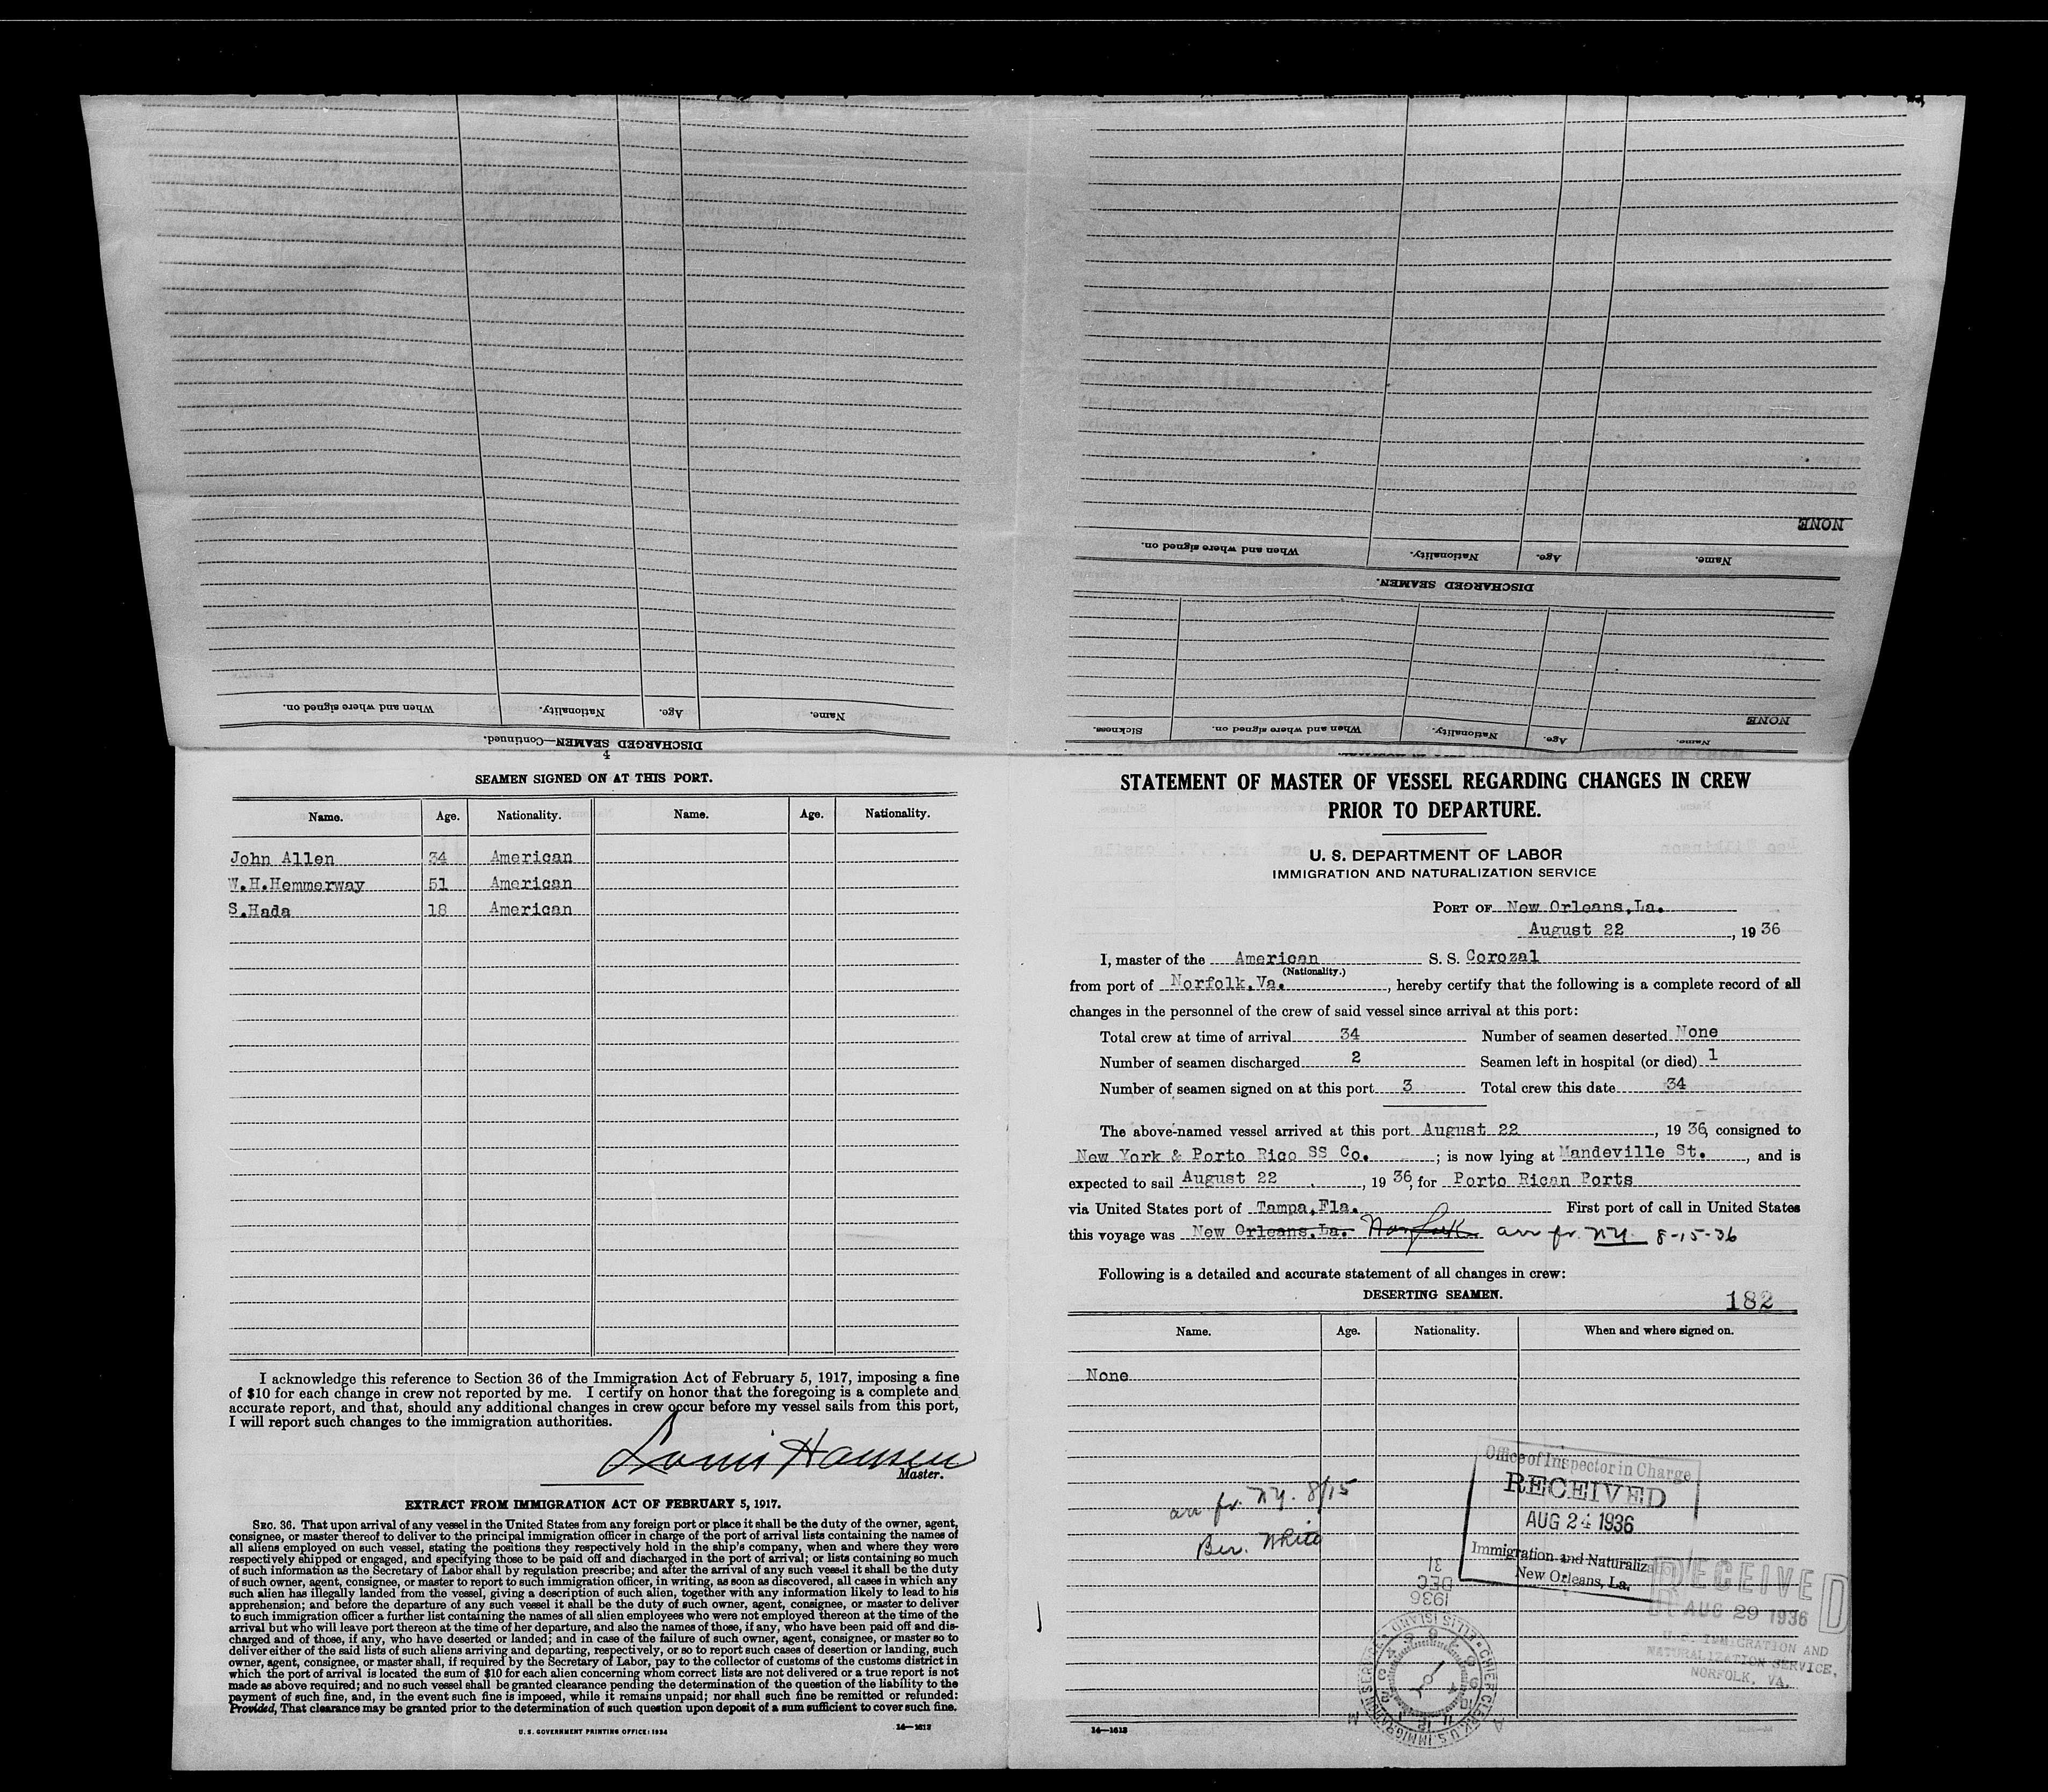 DISCHARGED SEAMEN—Continued.
Name. Age. Nationality. When and where signed on.
Name. Age. Nationality. When and where signed on. Sickness.
NONE
DISCHARGED SEAMEN.
Name. Age. Nationality. When and where signed on.
NONE
4
SEAMEN SIGNED ON AT THIS PORT.
Name. Age. Nationality. Name. Age. Nationality.
John Allen 34 American
W.H.Hemmerway 51 American
S.Hada 18 American
I acknowledge this reference to Section 36 of the Immigration Act of February 5, 1917, imposing a fine
of $10 for each change in crew not reported by me. I certify on honor that the foregoing is a complete and
accurate report, and that, should any additional changes in crew occur before my vessel sails from this port,
I will report such changes to the immigration authorities.
Louis Hansen
Master.
EXTRACT FROM IMMIGRATION ACT OF FEBRUARY 5, 1917.
SEC. 36. That upon arrival of any vessel in the United States from any foreign port or place it shall be the duty of the owner, agent,
consignee, or master thereof to deliver to the principal immigration officer in charge of the port of arrival lists containing the names of
all aliens employed on such vessel, stating the positions they respectively hold in the ship's company, when and where they were
respectively shipped or engaged, and specifying those to be paid off and discharged in the port of arrival; or lists containing so much
of such information as the Secretary of Labor shall by regulation prescribe; and after the arrival of any such vessel it shall be the duty
of such owner, agent, consignee, or master to report to such immigration officer, in writing, as soon as discovered, all cases in which any
such alien has illegally landed from the vessel, giving a description of such alien, together with any information likely to lead to his
apprehension; and before the departure of any such vessel it shall be the duty of such owner, agent, consignee, or master to deliver
to such immigration officer a further list containing the names of all alien employees who were not employed thereon at the time of the
arrival but who will leave port thereon at the time of her departure, and also the names of those, if any, who have been paid off and dis-
charged and of those, if any, who have deserted or landed; and in case of the failure of such owner, agent, consignee, or master so to
deliver either of the said lists of such aliens arriving and departing, respectively, or so to report such cases of desertion or landing, such
owner, agent, consignee, or master shall, if required by the Secretary of Labor, pay to the collector of customs of the customs district in
which the port of arrival is located the sum of $10 for each alien concerning whom correct lists are not delivered or a true report is not
made as above required; and no such vessel shall be granted clearance pending the determination of the question of the liability to the
payment of such fine, and, in the event such fine is imposed, while it remains unpaid; nor shall such fine be remitted or refunded:
Provided, That clearance may be granted prior to the determination of such question upon deposit of a sum sufficient to cover such fine.
U. S. GOVERNMENT PRINTING OFFICE: 1934 14—1613
STATEMENT OF MASTER OF VESSEL REGARDING CHANGES IN CREW
PRIOR TO DEPARTURE.
U. S. DEPARTMENT OF LABOR
IMMIGRATION AND NATURALIZATION SERVICE
PORT OF New Orleans,La.
August 22, 1936
I, master of the American S. S. Corozal
(Nationality.)
from port of Norfolk,Va., hereby certify that the following is a complete record of all
changes in the personnel of the crew of said vessel since arrival at this port:
Total crew at time of arrival 34 Number of seamen deserted None
Number of seamen discharged 2 Seamen left in hospital (or died) 1
Number of seamen signed on at this port 3 Total crew this date 34
The above-named vessel arrived at this port August 22, 1936, consigned to
New York & Porto Rico SS Co.; is now lying at Mandeville St., and is
expected to sail August 22, 1936, for Porto Rican Ports
via United States port of Tampa,Fla. First port of call in United States
this voyage was New Orleans,La. Norfolk arr fr. NY. 8-15-36
Following is a detailed and accurate statement of all changes in crew:
DESERTING SEAMEN.
182
Name. Age. Nationality. When and where signed on.
None
arr fr. NY. 8/15
Ber. White
Office of Inspector in Charge
RECEIVED
AUG 24 1936
Immigration and Naturalization
New Orleans, La.
RECEIVED
AUG 29 1936
U.S. IMMIGRATION AND
NATURALIZATION SERVICE,
NORFOLK, VA.
1936
DEC
31
CHIEF CLERK U.S. IMMIGRATION SERVICE ELLIS ISLAND
14—1613